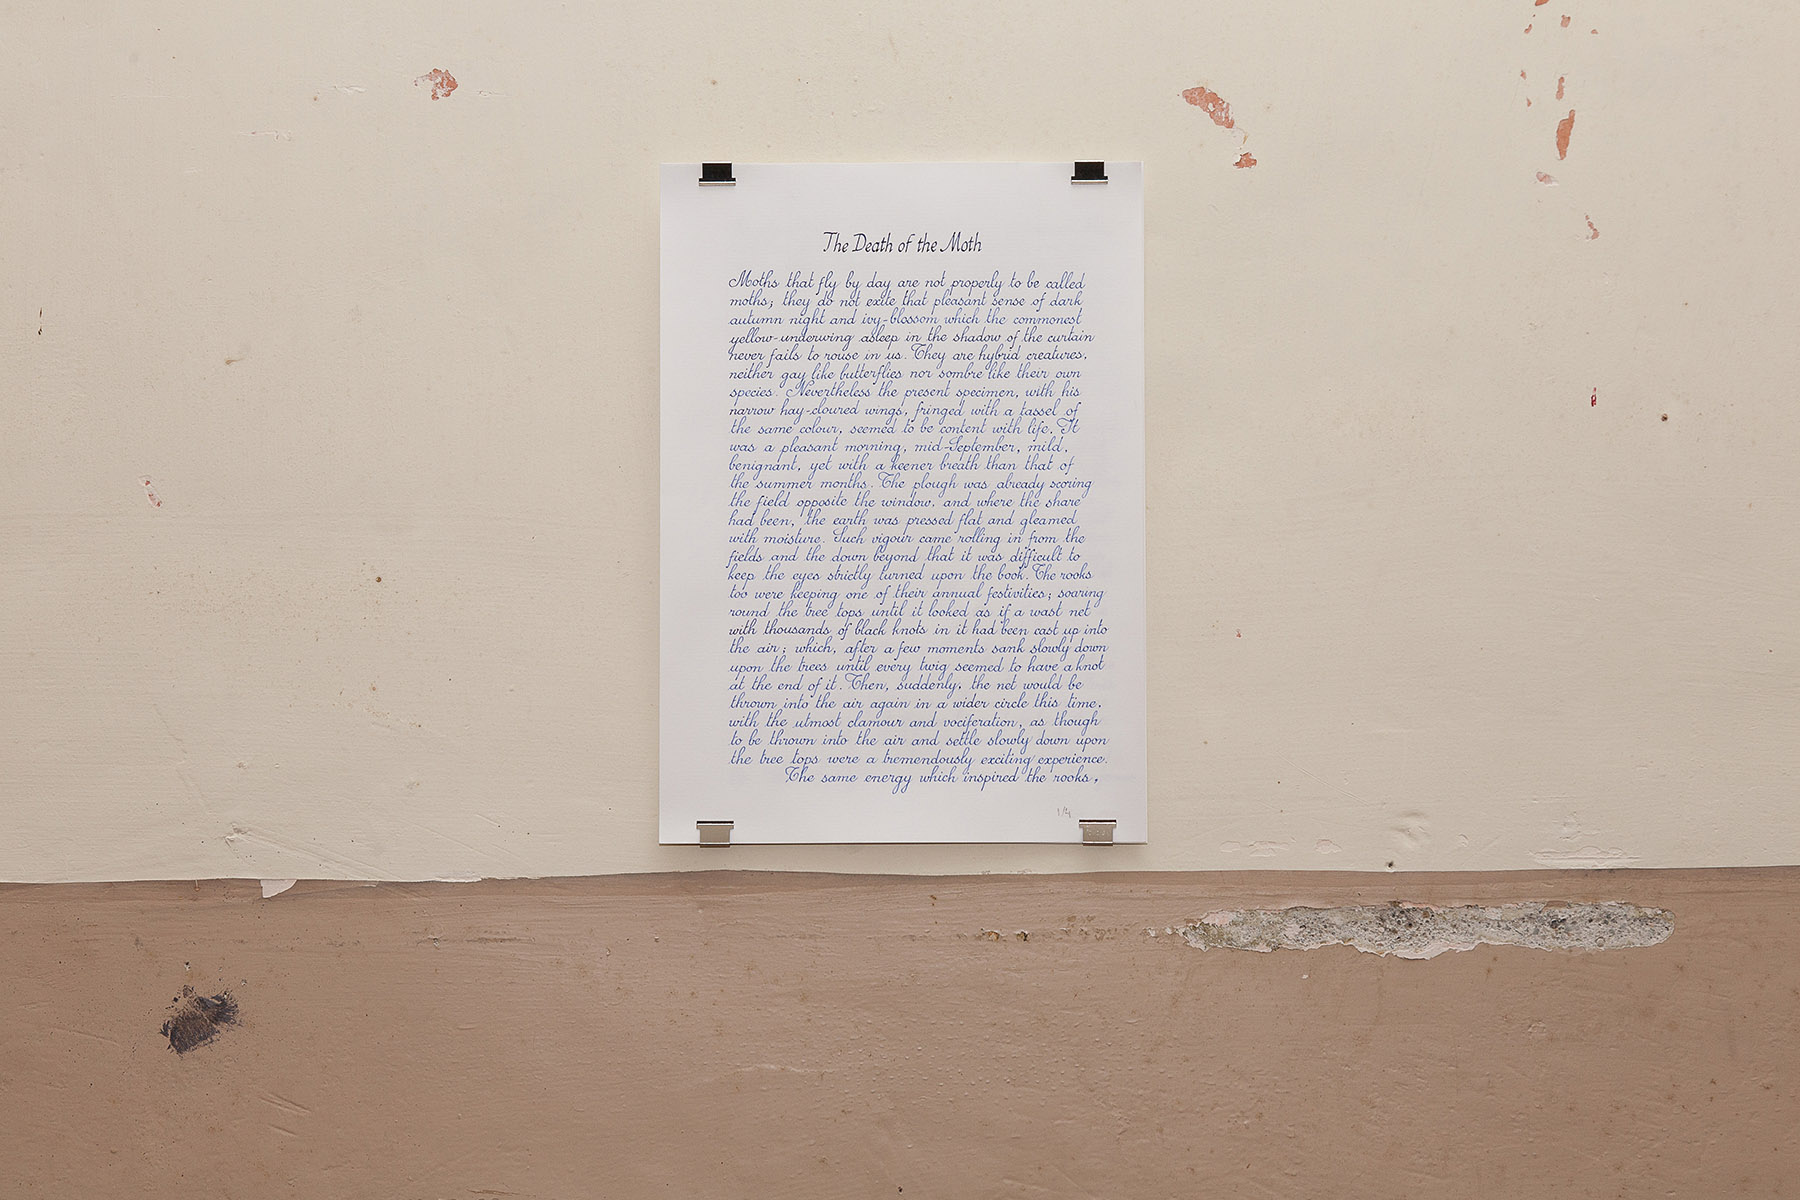 The Death of the Moth
Moths that fly by day are not properly to be called
moths; they do not exite that pleasant sense of dark
autumn night and ivy-blossom which the commonest
yellow-underwing asleep in the shadow of the curtain
never fails to rouse in us. They are hybrid creatures,
neither gay like butterflies nor sombre like their own
species. Nevertheless the present specimen, with his
narrow hay-cloured wings, fringed with a tassel of
the same colour, seemed to be content with life. It
was a pleasant morning, mid-September, mild,
benignant, yet with a keener breath than that of
the summer months. The plough was already scoring
the field opposite the window, and where the share
had been, the earth was pressed flat and gleamed
with moisture. Such vigour came rolling in from the
fields and the down beyond that it was difficult to
keep the eyes strictly turned upon the book. The rooks
too were keeping one of their annual festivities; soaring
round the tree tops until it looked as if a wast net
with thousands of black knots in it had been cast up into
the air; which, after a few moments sank slowly down
upon the trees until every twig seemed to have a knot
at the end of it. Then, suddenly, the net would be
thrown into the air again in a wider circle this time,
with the utmost clamour and vociferation, as though
to be thrown into the air and settle slowly down upon
the tree tops were a tremendously exciting experience.
The same energy which inspired the rooks,
1/4